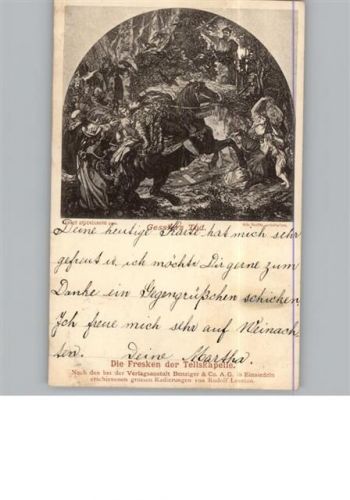 Gesslers Tod.
Deine heutige Karte hat mich sehr
gefreut u. ich möchte Dir gerne zum
Danke ein Gegengrüßchen schicken
Ich freue mich sehr auf Weinach-
ten. Deine Martha.
Die Fresken der Tellskapelle.
Nach den bei der Verlagsanstalt Benziger & Co. A.G. in Einsiedeln
erschienenen grossen Radierungen von Rudolf Leemann.